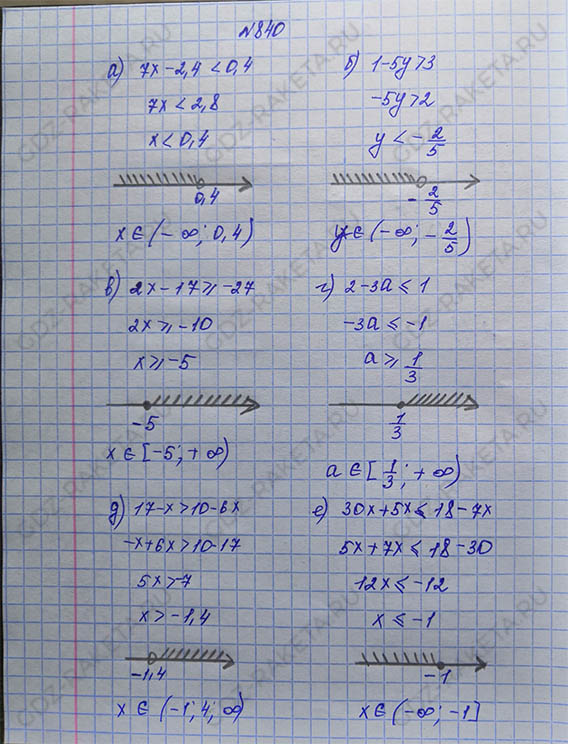 №840
а) 7x-2,4<0,4
7x<2,8
x<0,4
0,4
x∈(-∞; 0,4)
б) 1-5y>3
-5y>2
y<-2/5
-2/5
y∈(-∞; -2/5)
в) 2x-17⩾-27
2x⩾-10
x⩾-5
-5
x∈[-5; +∞)
г) 2-3a⩽1
-3a⩽-1
a⩾1/3
1/3
a∈[1/3; +∞)
д) 17-x>10-6x
-x+6x>10-17
5x>7
x>-1,4
-1,4
x∈(-1;4; ∞)
е) 30x+5x⩽18-7x
5x+7x⩽18-30
12x⩽-12
x⩽-1
-1
x∈(-∞; -1]
GDZ-RAKETA.RU